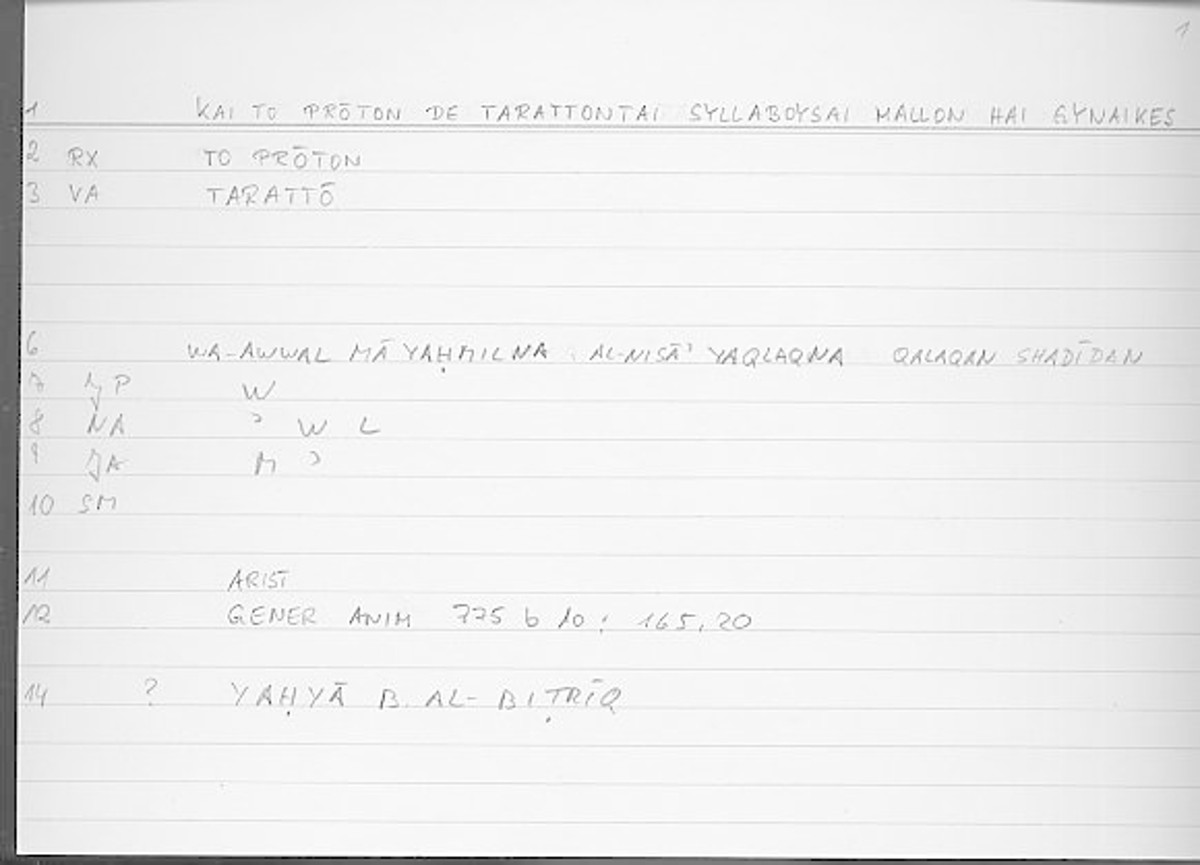 1
1 KAI TO PRŌTON DE TARATTONTAI SYLLABOYSAI MALLON HAI GYNAIKES
2 RX TO PRŌTON
3 VA TARATTŌ
6 WA-AWWAL MĀ YAḤMILNA AL-NISĀʾ YAQLAQNA QALAQAN SHADĪDAN
7 P W
8 NA ʾ W L
9 JA M ʾ
10 SM
11 ARIST
12 GENER ANIM 775 b 10 : 165,20
14 ? YAḤYĀ B. AL-BIṬRĪQ